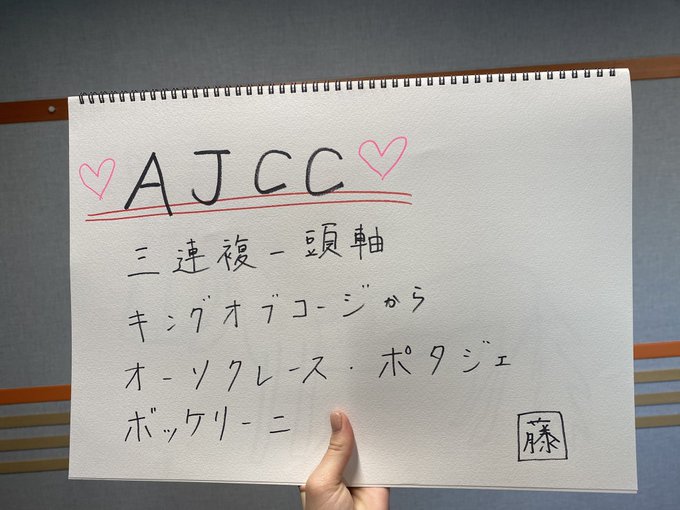 AJCC
三連複一頭軸
キングオブコージから
オーソクレース・ポタジェ
ボッケリーニ
藤